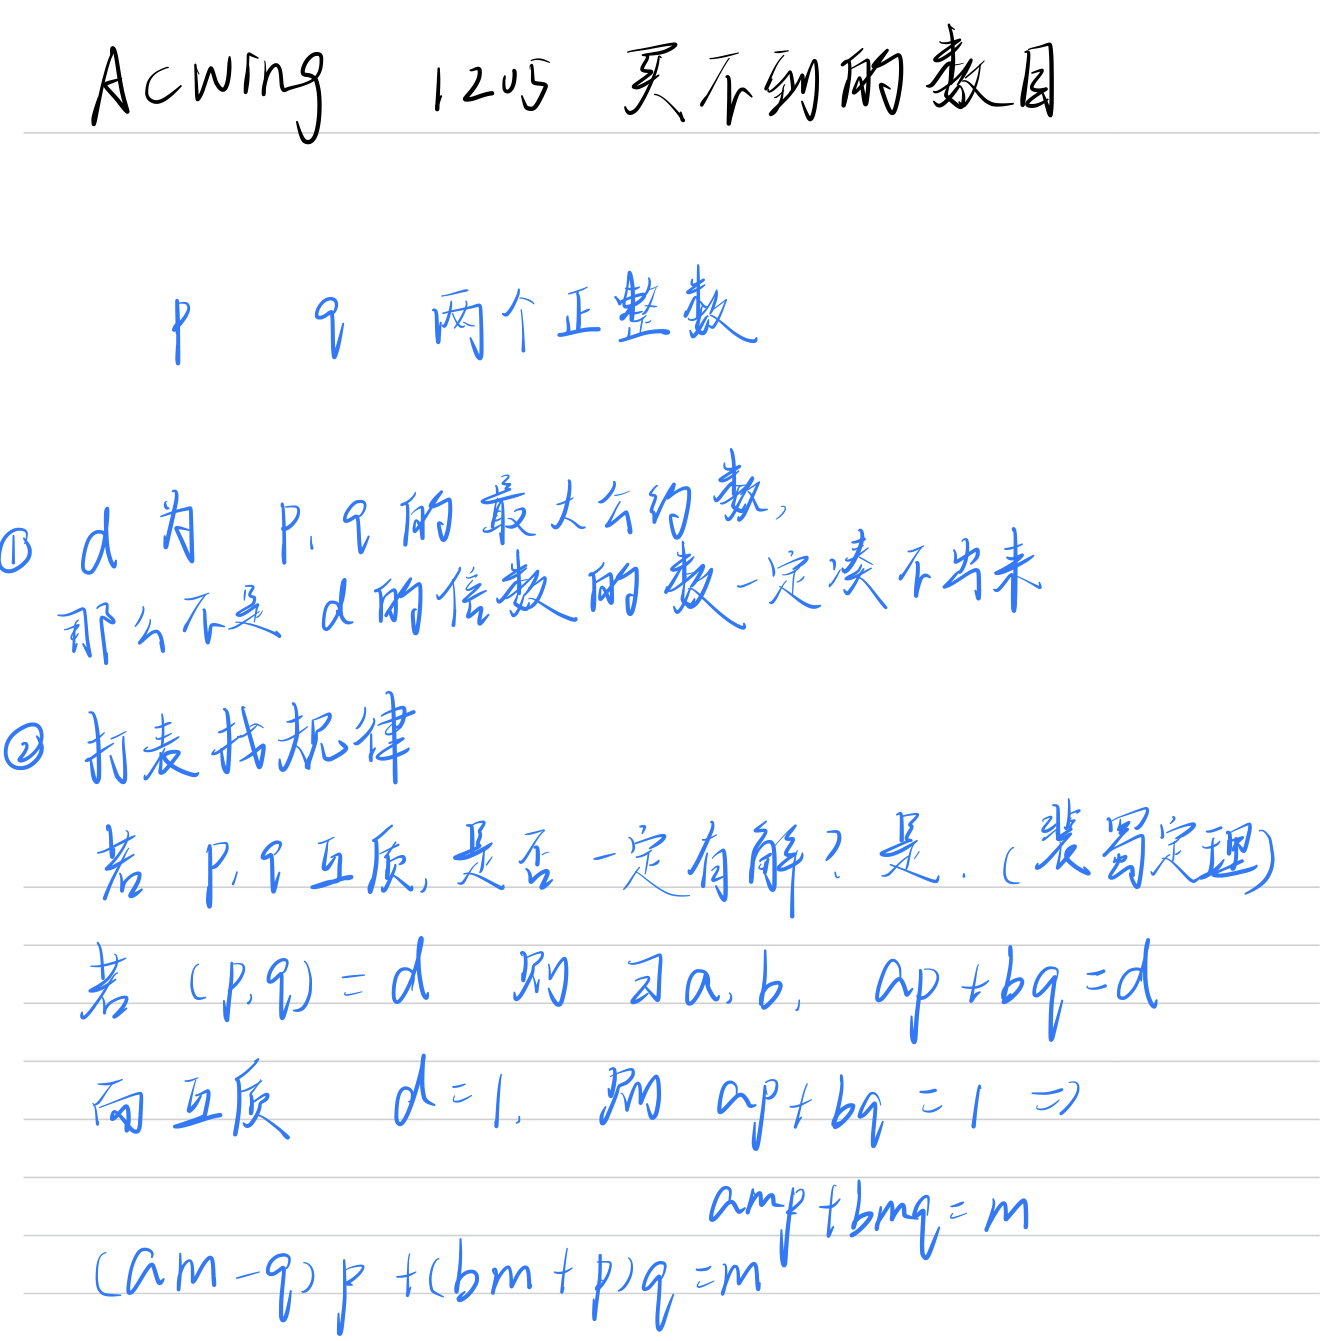 AcWing 1205 买不到的数目
p q 两个正整数
① d 为 p, q 的最大公约数,
那么不是 d 的倍数的数一定凑不出来
② 打表找规律
若 p, q 互质, 是否一定有解? 是. (裴蜀定理)
若 (p, q) = d 则 ∃ a, b, ap + bq = d
而互质 d = 1, 则 ap + bq = 1 ⇒
amp + bmq = m
(am - q) p + (bm + p) q = m